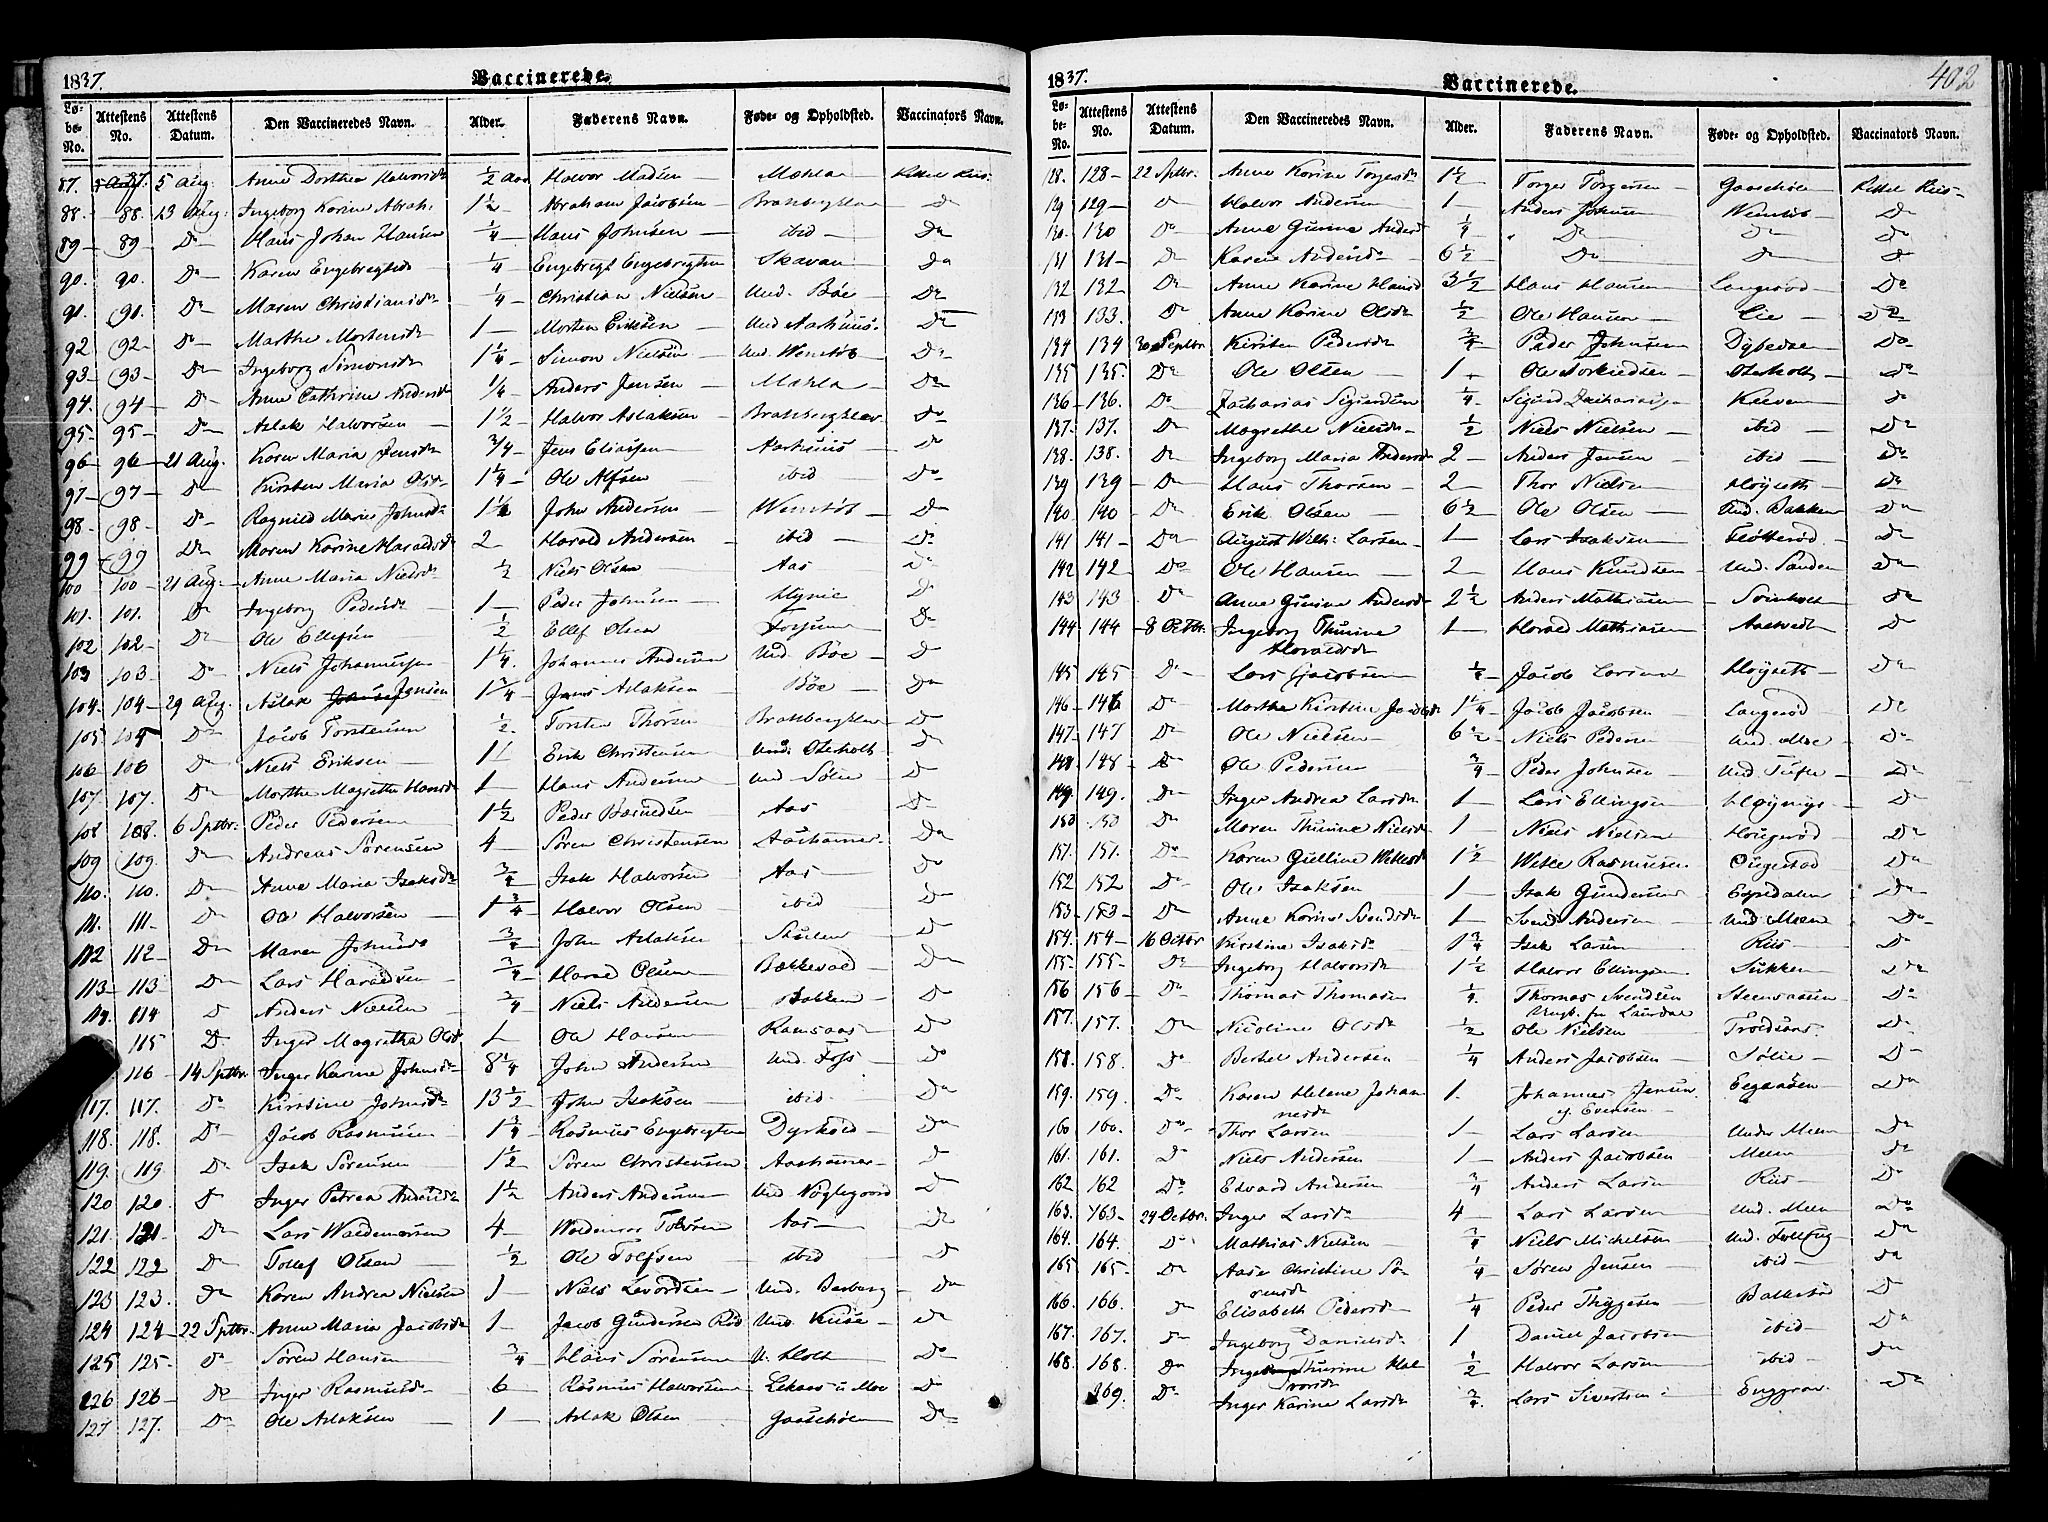 1837.
Vaccinerede.
Løbe-No. Attestens No. Attestens Datum. Den Vaccineredes Navn. Alder. Faderens Navn. Føde- og Opholdsted. Vaccinators Navn.
87. 5 Aug. Anne Dorthea Halvorsdr ½ Aar Halvor Madsen Mæhla
88. 88. 13 Aug. Ingeborg Karine Abrah. 1½ Abraham Jacobsen Do
89 89 Do Hans Johan Hansen ¼ Hans Johnsen ibid Do
90. 90. Do Karen Engebregtsdr ¼ Engebregt Engebregtsen Skavan Do
91. 91. Do Maren Christiansdr ¼ Christian Nielsen Und. Böe Do
92 92 Do Marthe Mortensdr 1 Morten Eriksen Und Aarhuus. Do
93 93 Do Ingeborg Simonsdr 1¼ Simon Nielsen Und. Wenstöb Do
94. 94 Do Anne Cathrine Andersdr ¼ Anders Jensen Mæhla Do
95 95 Do Aslak Halvorsen 1½ Halvor Aslaksen Do
96 96 21 Aug. Karen Maria Jensdr ¾ Jens Eliassen Aarhuus Do
97 97 Do Kirsten Maria Olsdr 1¼ Ole Alfsen ibid Do
98 98 Do Ragnild Marie Johnsdr John Andersen Wenstöb Do
99 99 Do Maren Karine Haraldsdr 2 Harald Andersen ibid Do
100 100 21 Aug. Anne Maria Nielsdr ½ Niels Olsen Aas Do
101. 101. Do Ingeborg Pedersdr 1 Peder Johnsen Do
102 102 Do Ole Ellefsen ½ Ellef Olsen Do
103 103 Do Niels Johannessen 1¼ Johannes Andersen Und Böe Do
104. 104 29 Aug. Aslak Jensen 1¾ Jens Aslaksen Böe Do
105 105 Do Jacob Torstensen ½ Torsten Thorsen Do
106 106 Do Niels Eriksen 1 Erik Christensen Und. Oterholt Do
107. 107. Do Marthe Magrethe Hansdr 1 Hans Andersen Und Sölie Do
108 108. 6 Sptbr. Peder Pedersen 1½ Peder Aas Do
109 109. Do Andreas Sörensen 4 Sören Christensen Do
110. 110. Do Anne Maria Isaksdr ¾ Isak Halvorsen Aas Do
111. 111. Do Ole Halvorsen 1¾ Halvor Olsen ibid Do
112 112 Do Maren Johnsdr ¾ John Aslaksen Do
113 113 Do Lars Haraldsen ¾ Harald Olsen Bækkevold Do
114. 114 D Anders Nielsen ¾ Niels Andersen Bakken Do
115 Do Inger Magretha Olsdr 1 Ole Hansen Ramsaas Do
116 14 Sptbr. Inger Karine Johnsdr 8¼ John Andersen Und. Foss Do
117. 117. Do Kirstine Johnsdr 13½ John Isaksen ibid Do
118. 118. Do Jacob Rasmusen 1¾ Rasmus Engebregtsen Do
119. 119. Do Isak Sörensen 1½ Sören Christensen Do
120 120. Do Inger Petrea Andersdr 1½ Anders Andersen Und Nöglegaard Do
121. 121 Do Lars Waldemarsen 4 Waldemar Aas Do
122 122 Do Tollef Olsen ½ Ole ibid Do
123 123. Do Karen Andrea Nielsen 1 Niels Do
124 124 22 Sptbr. Anne Maria Jacobsdr 1 Jacob Gundersen Do
125 125 Do Sören Hansen ¾ Hans Sörensen U. Holt Do
126 126 Do Inger Rasmusdr 6 Rasmus Halvorsen Do
127 127. Do Ole Aslaksen 1 Aslak Olsen Gaaschölen Do
1837.
Vaccinerede.
402
Løbe-No. Attestens No. Attestens Datum. Den Vaccineredes Navn. Alder. Faderens Navn. Føde- og Opholdsted. Vaccinators Navn.
128. 128 22 Sptbr. Anne Karine Torgersdr 1½ Torger Torgersen Gaaschölen
129 129 Do Halvor Andersen 1 Anders Johnsen Wenstöb Do
130. 130 Do Anne Gurine Andersd ¼ Do Do Do
131 131 Do Karen Andersdr 6½ Do Do Do
132 132 Do Anne Karine Hansd 3½ Hans Hansen Langeröd Do
133 133. Do Anne Karine Olsdr ½ Ole Hansen Lie Do
134 134 30 Septbr. Kirsten Pedersdr ¾ Peder Johnsen Dybedal Do
135 135. Do Ole Olsen 1 Ole Oterholt Do
136 136. Do Zacharias Sigurdsen ¼ Sigurd Zachariass. Do
137. 137. Do Magrethe Nielsdr ½ Niels Nielsen ibid Do
138. 138. Do Ingeborg Maria Andersdr 2 Anders Jensen ibid Do
139 139 Do Hans Thorsen 2 Thor Nielsen Höyseth Do
140 140 Do Erik Olsen 6½ Ole Olsen Und. Bakken Do
141 141 Do August Wilh. Larsen 1 Lars Isaksen Flötteröd Do
142 142 Do Ole Hansen 2 Hans Knudsen Und. Sanden Do
143 143 Do Anne Gurine Andersdr 2½ Anders Mathiasen Do
144 144 8 Octbr. Ingeborg Thurine 1 Harald Mathiasen Do
Haraldsdr
145 145 Do Lars Jacobsen Jacob Larsen Höyseth Do
146 146 Do Marthe Kirstine Jacobsdr 1¼ Jacob Jacobsen Langeröd Do
147 147 Do Ole Nielsen 6½ Niels Pedersen Und. Moe Do
148 148 Do Ole Pedersen ¾ Peder Johnsen Und Tufte Do
149. 149. Do Inger Andrea Larsdr 1 Lars Ellingsen Do
150 150 Do Maren Thurine Nielsdr 1 Niels Nielsen Do
151. 151. Do Karen Gulline 1½ Rasmusen Do
152 152 Do Ole Isaksen 1 Isak Gundersen Do
153 153 Do Anne Karine Svendsdr 1 Svend Andersen Und Meen Do
154. 154 16 Octbr Kirstine Isaksdr 1¾ Isak Larsen Riis Do
155 155 Do Ingeborg Halvorsdr 1½ Halvor Ellingsen Do
156 156 Do Thomas Thomasen ¼ Thomas Svendsen Steensaasen Do
Ungk. fra Laurdal
157. 157. Do Nicoline Olsdr ½ Ole Nielsen Troldsaas Do
158. 158. Do Berthel Andersen ¼ Anders Jacobsen Sölie Do
159. 159. Do Karen Helene Johan 1. Johannes Jensen Do
nesdr
160 160. Do Thor Larsen 1 Lars Larsen Under Meen Do
161. 161. Do Niels Andersen 1 Anders Jacobsen Meen Do
162 162 Do Edvard Andersen ¾ Anders Larsen Riis Do
163. 163 24 Octbr. Inger Larsdr 4 Lars Larsen Und. Meen Do
164. 164. Do Mathias Nielsen ¾ Niels Michelsen Do
165 165 Do Aase Christine Sö ¼ Sören Jensen ibid Do
rensdr
166. 166. Do Elisabeth Pedersdr ¼ Peder Thygesen Do
167. 167. Do Ingeborg Danielsdr 1 Daniel Jacobsen ibid Do
168. 168. Do Thurine Hal ½ Halvor Larsen ibid Do
vorsdr
169. Do Inger Karine Larsdr Lars Sivertsen Enggrav Do